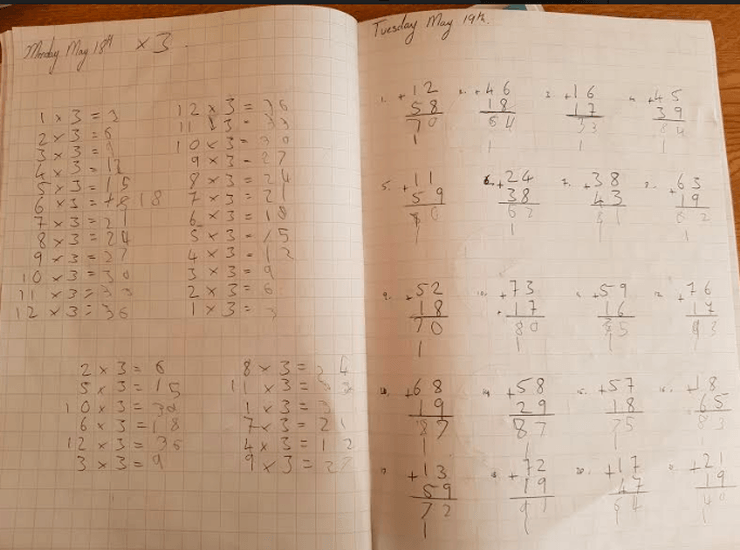 Monday May 18th x3
1 x 3 = 3
2 x 3 = 6
3 x 3 = 9
4 x 3 = 12
5 x 3 = 15
6 x 3 = 18
7 x 3 = 21
8 x 3 = 24
9 x 3 = 27
10 x 3 = 30
11 x 3 = 33
12 x 3 = 36
12 x 3 = 36
11 x 3 = 33
10 x 3 = 30
9 x 3 = 27
8 x 3 = 24
7 x 3 = 21
6 x 3 = 18
5 x 3 = 15
4 x 3 = 12
3 x 3 = 9
2 x 3 = 6
1 x 3 = 3
2 x 3 = 6
5 x 3 = 15
10 x 3 = 30
6 x 3 = 18
12 x 3 = 36
3 x 3 = 9
8 x 3 = 24
11 x 3 = 33
1 x 3 = 3
7 x 3 = 21
4 x 3 = 12
9 x 3 = 27
Tuesday May 19th.
1. +12 2. +46 3. +16 4. +45
58 18 17 39
70 64 33 84
1 1 1 1
5. +11 6. +24 7. +38 +63
59 38 43 19
70 62 81 82
1 1 1 1
9. +52 10. +73 +59 12. +76
18 17 16 17
70 80 93
1 1 1 1
+68 +58 +57 +18
19 29 18 65
87 87 75 83
1 1 1 1
+13 +72 +17 +21
59 19 47 19
72 91 64 40
1 1 1 1